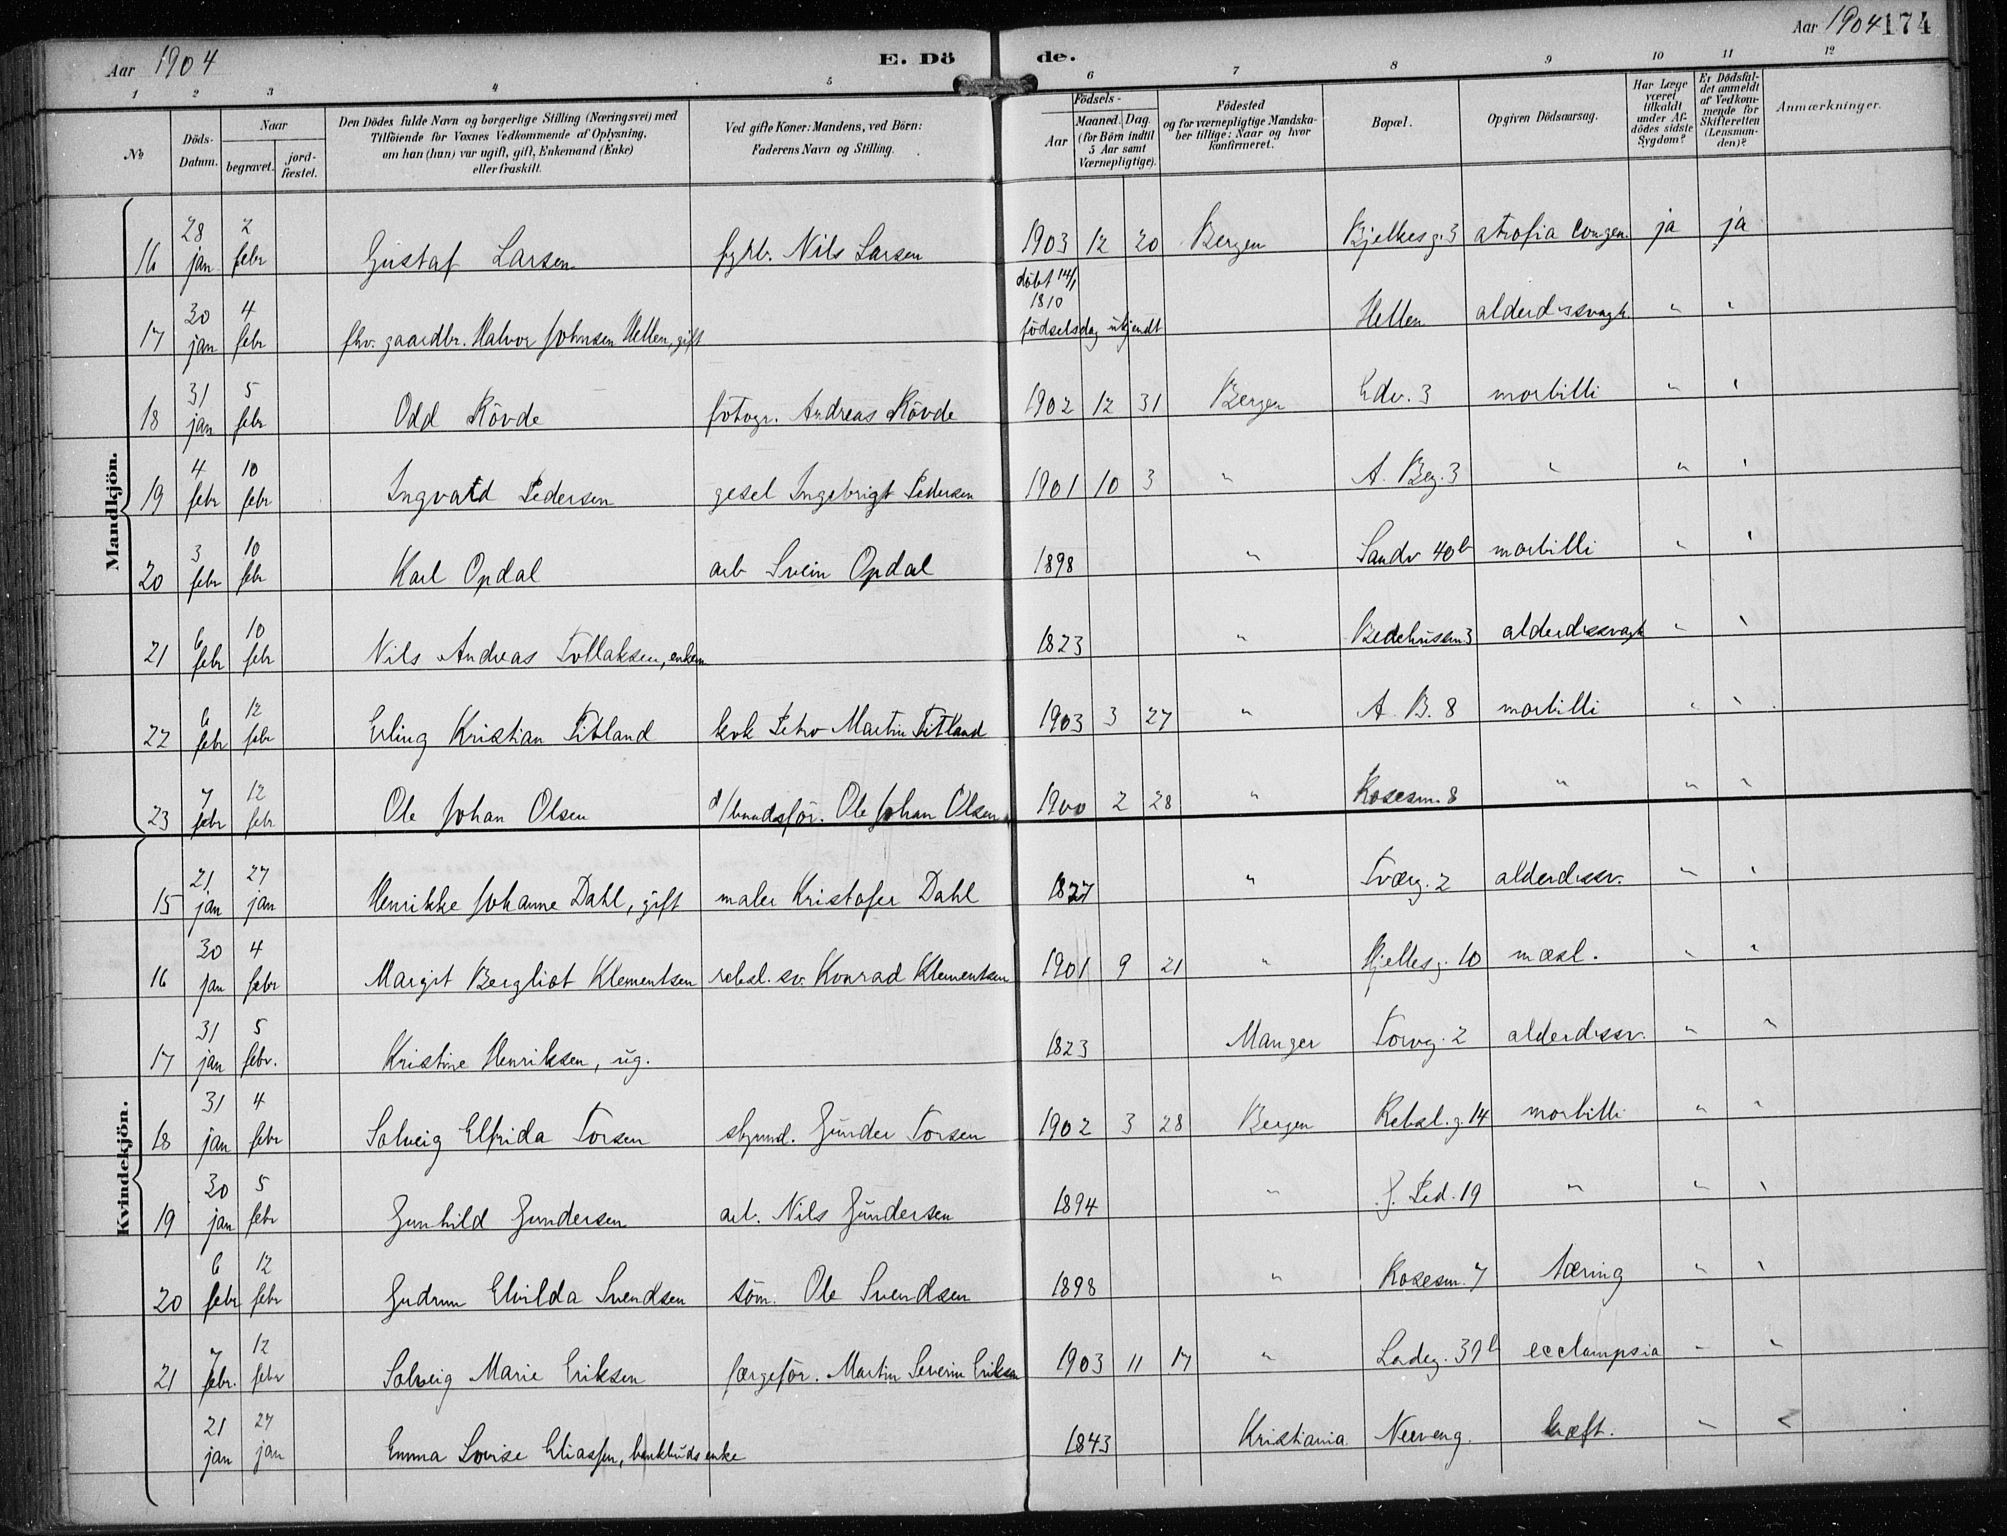 Aar 1904 E. Dö de. Aar 1904 174
1 2 3 4 5 6 7 8 9 10 11 12
No
Döds-Datum.
Naar
begravet.
jord-fæstet.
Den Dödes fulde Navn og borgerlige Stilling (Næringsvei) med
Tilföiende for Voxnes Vedkommende af Oplysning,
om han (hun) var ugift, gift, Enkemand (Enke)
eller fraskilt.
Ved gifte Koner: Mandens, ved Börn:
Faderens Navn og Stilling.
Födsels-
Aar
Maaned. Dag.
(for Börn indtil
5 Aar samt
Værnepligtige).
Födested
og for værnepligtige Mandska-
ber tillige: Naar og hvor
konfirmeret.
Bopæl.
Opgiven Dödsaarsag.
Har Læge
været
tilkaldt
under Af-
dödes sidste
Sygdom?
Er Dödsfal-
det anmeldt
af Vedkom-
mende for
Skifteretten
(Lensman-
den)?
Anmærkninger.
Mandkjön.
16 28 jan 2 febr Gustaf Larsen fyrb. Nils Larsen 1903 12 20 Bergen Bjelkesg. 3 atrofia congen. ja ja
döbt 14/1
17 30 jan 4 febr fhv. gaardbr. Halvor Johnsen Hellen, gift 1810 födselsdag ukjendt Hellen alderdssvagh. " "
18 31 jan 5 febr Odd Rövde fotogr. Andreas Rövde 1902 12 31 Bergen Edv. 3 morbilli " "
19 4 febr 10 febr Ingvald Pedersen gesel Ingebrigt Pedersen 1901 10 3 " A. Beg. 3 " " "
20 3 febr 10 febr Karl Opdal arb Svein Opdal 1898 " Sandv 40b morbilli " "
21 6 febr 10 febr Nils Andreas Tollaksen, enkem 1823 " Bedehussm 3 alderdssvagh " "
22 6 febr 12 febr Erling Kristian Titland kok Petro Martin Titland 1903 3 27 " A. B. 8 morbilli " "
23 7 febr 12 febr Ole Johan Olsen Ole Johan Olsen 1900 2 28 " Rosesm. 8 " " "
Kvindekjön.
15 21 jan 27 jan Henrikke Johanne Dahl, gift maler Kristofer Dahl 1827 " Tværg. 2 alderdssv. " "
16 30 jan 4 febr Margit Bergliot Klementsen rebsl. sv. Konrad Klementsen 1901 9 21 " Hjellesg. 10 mæsl. " "
17 31 jan 5 febr. Kristine Henriksen, ug. 1823 Manger Torvg. 2 alderdssv. " "
18 31 jan 4 febr Solveig Elfrida Torsen Gunder Torsen 1902 3 28 Bergen Rebsl. g. 14 morbilli " "
19 30 jan 5 febr Gunhild Gundersen arb. Nils Gundersen 1894 " J. Led. 19 " " "
20 6 febr 12 febr Gudrun Elvilda Svendsen söm. Ole Svendsen 1898 " Rosesm. 7 tæring " "
21 7 febr. 12 febr Solveig Marie Eriksen færgeför. Martin Severin Eriksen 1903 11 17 " Ladeg. 39b ecclampsia " "
21 jan 27 jan Emma Lovise Eliassen, bankbuds enke 1843 Kristiania Nerveng. kræft. " "